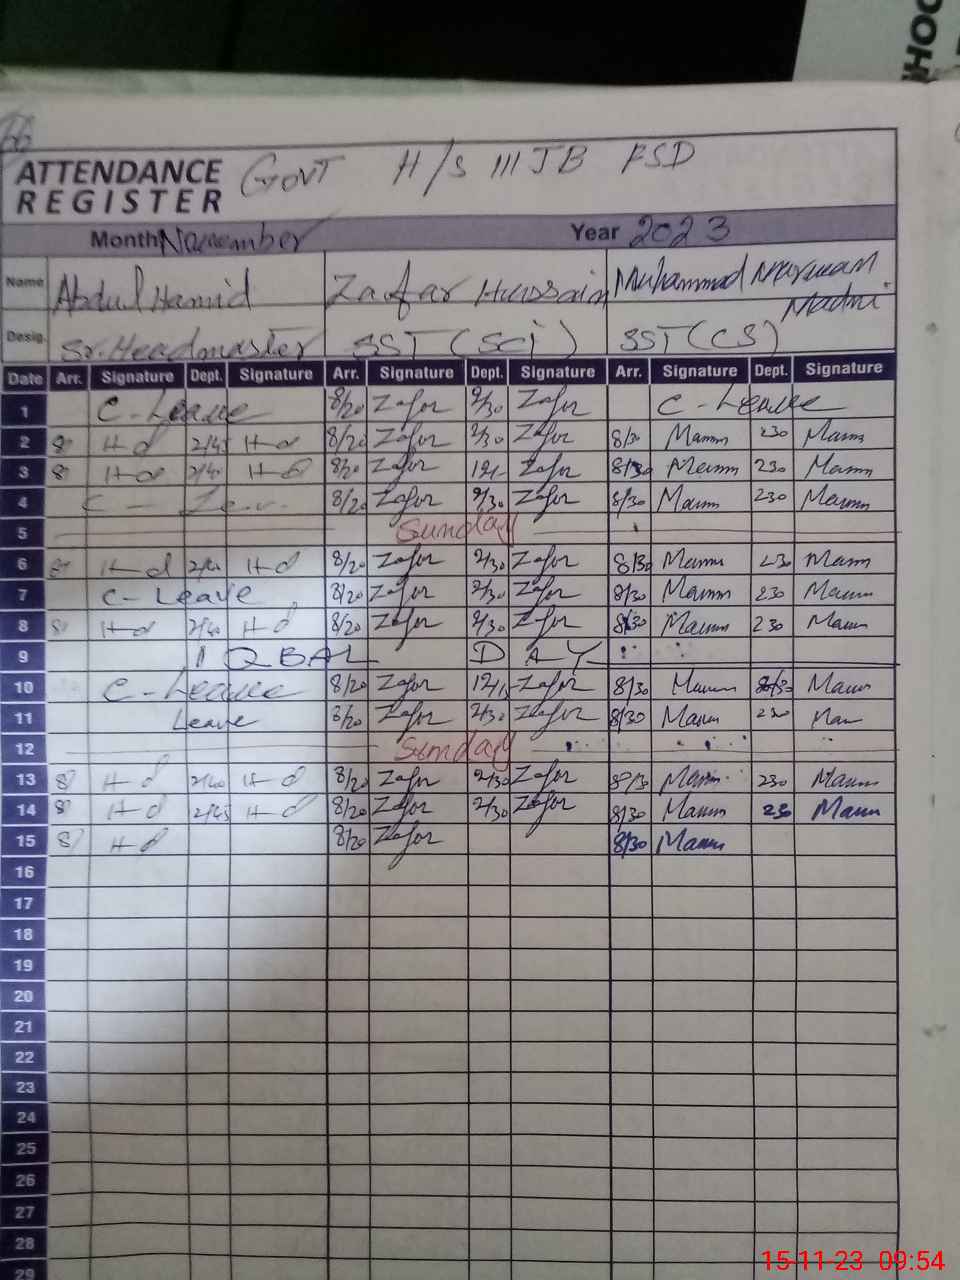 HOO
ATTENDANCE REGISTER GOVT H/S 111 JB FSD
Month November Year 2023
Name Abdul Hamid Zafar Hussain Muhammad Marwan Madni
Desig. Sr. Headmaster SST (Sci) SST (CS)
Date Arr. Signature Dept. Signature Arr. Signature Dept. Signature Arr. Signature Dept. Signature
1 C-Leave 8/20 Zafar 2/30 Zafar C-Leave
2 8 Hd 2/45 Hd 8/20 Zafar 2/30 Zafar 8/30 Marwn 230 Marwn
3 8 Hd 2/40 Hd 8/20 Zafar Zafar 8/30 Marwn 230 Marwn
4 C- 8/20 Zafar 2/30 Zafar 8/30 Marwn 230 Marwn
5 Sunday
6 Hd 2/40 Hd 8/20 Zafar 2/30 Zafar 8/30 Marwn 230 Marwn
7 C-Leave 8/20 Zafar 2/30 Zafar 8/30 Marwn 230 Marwn
8 8 Hd 2/40 Hd 8/20 Zafar 2/30 Zafar 8/30 Marwn 230 Marwn
9 IQBAL DAY
10 C-Leave 8/20 Zafar Zafar 8/30 Marwn Marwn
11 Leave 8/20 Zafar 2/30 Zafar 8/30 Marwn 230
12 Sunday
13 8 Hd 2/40 Hd 8/20 Zafar 2/30 Zafar 8/30 Marwn 230 Marwn
14 8 Hd 2/45 Hd 8/20 Zafar 2/30 Zafar 8/30 Marwn 230 Marwn
15 8 Hd 8/20 Zafar 8/30 Marwn
16
17
18
19
20
21
22
23
24
25
26
27
28
29
15-11-23 09:54